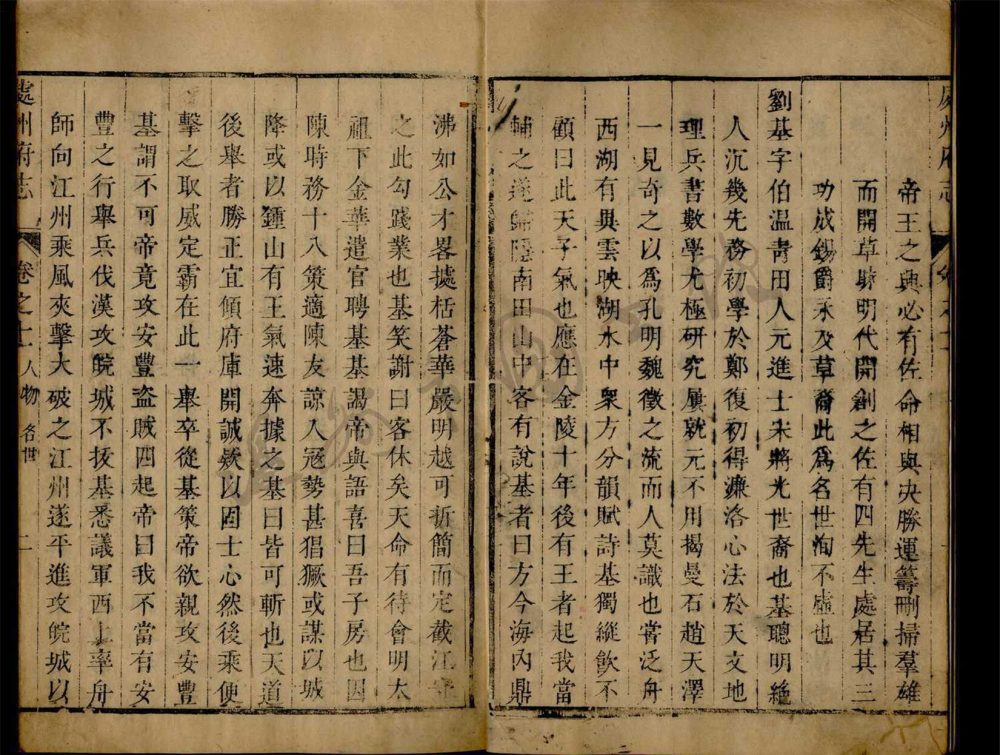 帝王之興必有佐命相與決勝運籌刪掃羣雄
而開草昧明代開創之佐有四先生處居其三
功成錫爵禾及草裔此爲名世洵不虛也
劉基字伯温靑田人元進士宋將光世裔也基聰明絶
人沉幾先務初學於鄭復初得濂洛心法於天文地
理兵書數學尤極研究屢就元不用揭曼石趙天澤
一見奇之以爲孔明魏徵之流而人莫識也嘗泛舟
西湖有異雲映湖水中衆方分韻賦詩基獨縱飮不
顧曰此天子氣也應在金陵十年後有王者起我當
輔之遂歸隱南田山中客有說基者曰方今海內鼎
沸如公才畧據栝蒼華嚴明越可折簡而定截江守
之此勾踐業也基笑謝曰客休矣天命有待會明太
祖下金華遣官聘基基謁帝與語喜曰吾子房也因
陳時務十八策適陳友諒入冦勢甚猖獗或謀以城
降或以鍾山有王氣速奔據之基曰皆可斬也天道
後舉者勝正宜傾府庫開誠欵以固士心然後乘便
擊之取威定霸在此一舉卒從基策帝欲親攻安豐
基謂不可帝竟攻安豐盜賊四起帝曰我不當有安
豐之行舉兵伐漢攻皖城不拔基悉議軍西上率舟
師向江州乘風夾擊大破之江州遂平進攻皖城以
處州府志
卷之十
人物 名世
二
處州府志